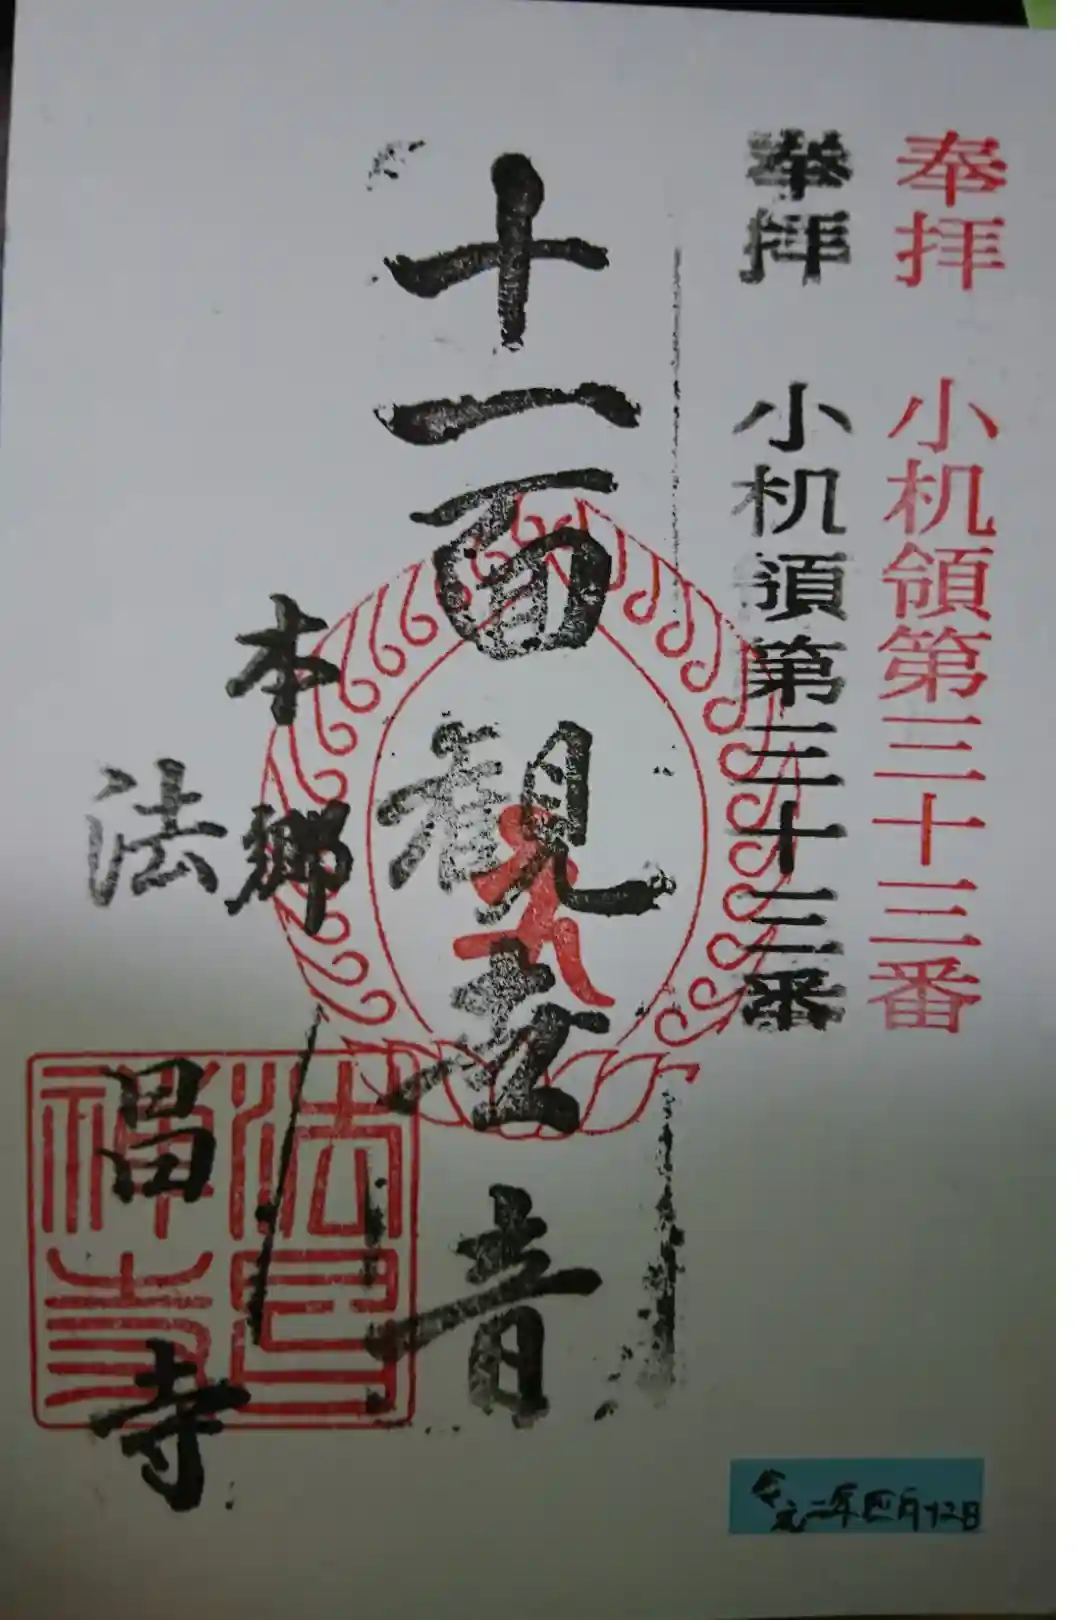 奉拝 小机領第三十三番
奉拝 小机領第三十三番
十一面観世音
本郷
法昌寺
法昌禅寺
令和二年四月十二日